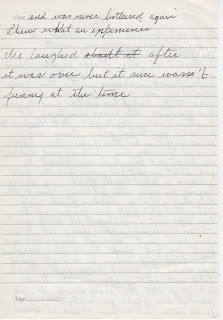 and was never bothered again
Phew what an experience
We laughed about it after
it was over but it sure wasn't
funny at the time
Page